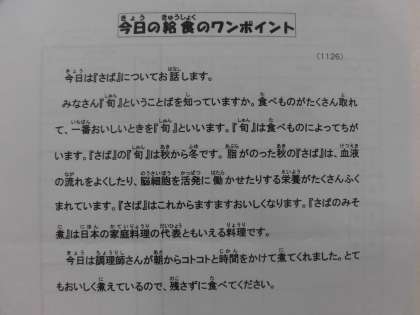 今日の給食のワンポイント
(1126)
今日は『さば』についてお話します。
みなさん『旬』ということばを知っていますか。食べものがたくさん取れ
て、一番おいしいときを『旬』といいます。『旬』は食べものによってちが
います。『さば』の『旬』は秋から冬です。脂がのった秋の『さば』は、血液
の流れをよくしたり、脳細胞を活発に働かせたりする栄養がたくさんふく
まれています。『さば』はこれからますますおいしくなります。『さばのみそ
煮』は日本の家庭料理の代表ともいえる料理です。
今日は調理師さんが朝からコトコトと時間をかけて煮てくれました。とて
もおいしく煮えているので、残さずに食べてください。